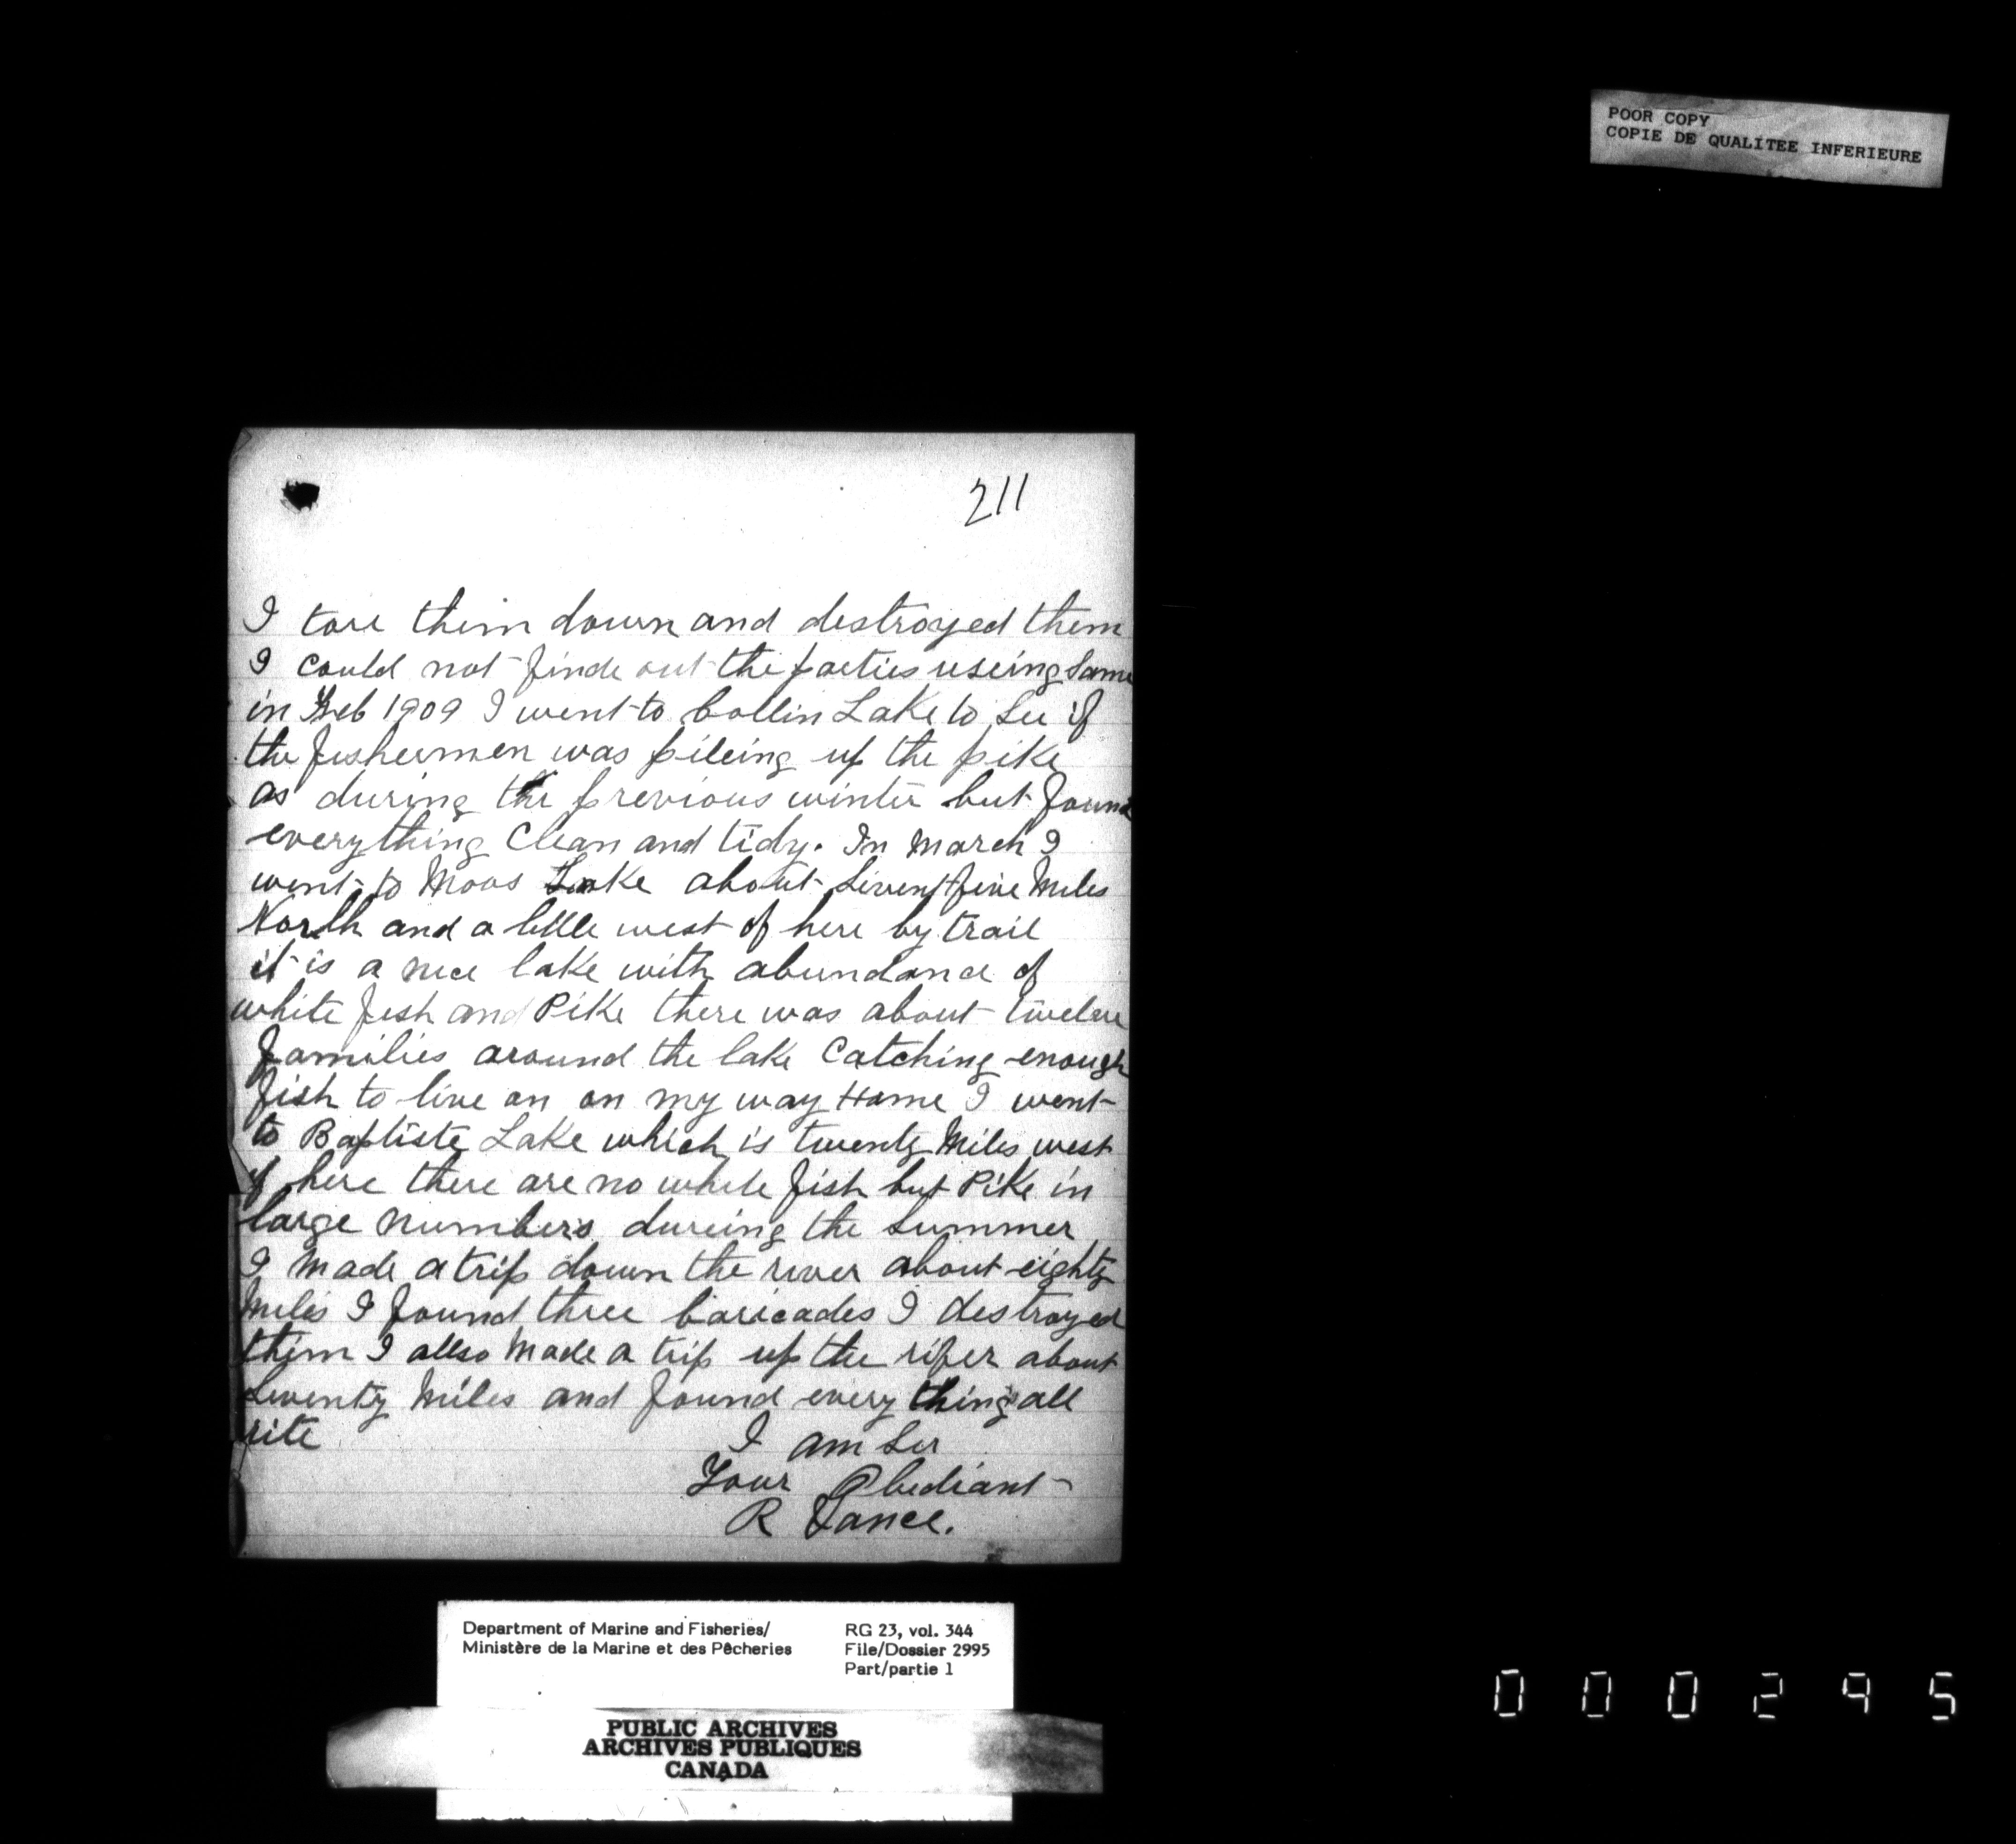 POOR COPY
COPIE DE QUALITEE INFERIEURE
211
I tore them down and destroyed them
I could not finde out the parties useing same
in Feb 1909 I went to bollin Lake to see if
the fishermen was pileing up the pike
as during the previous winter but found
everything Clean and tidy. In march I
went to Moos Lake about seventy five Miles
North and a little west of here by trail
it is a nice lake with abundance of
white fish and Pike there was about twelve
families around the lake Catching enough
fish to live on on my way Home I went
to Baptiste Lake which is twenty Miles west
of here there are no white fish but Pike in
large numbers dureing the summer
I made a trip down the river about eighty
miles I found three baricades I destroyed
them I allso made a trip up the rifer about
seventy Miles and found every thing all
rite
I am Sir
Your Obediant
R Vance.
Department of Marine and Fisheries/
Ministère de la Marine et des Pêcheries
RG 23, vol. 344
File/Dossier 2995
Part/partie 1
PUBLIC ARCHIVES
ARCHIVES PUBLIQUES
CANADA
000295